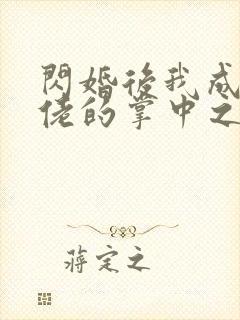 閃婚後我成
佬的掌中之
蔣定之